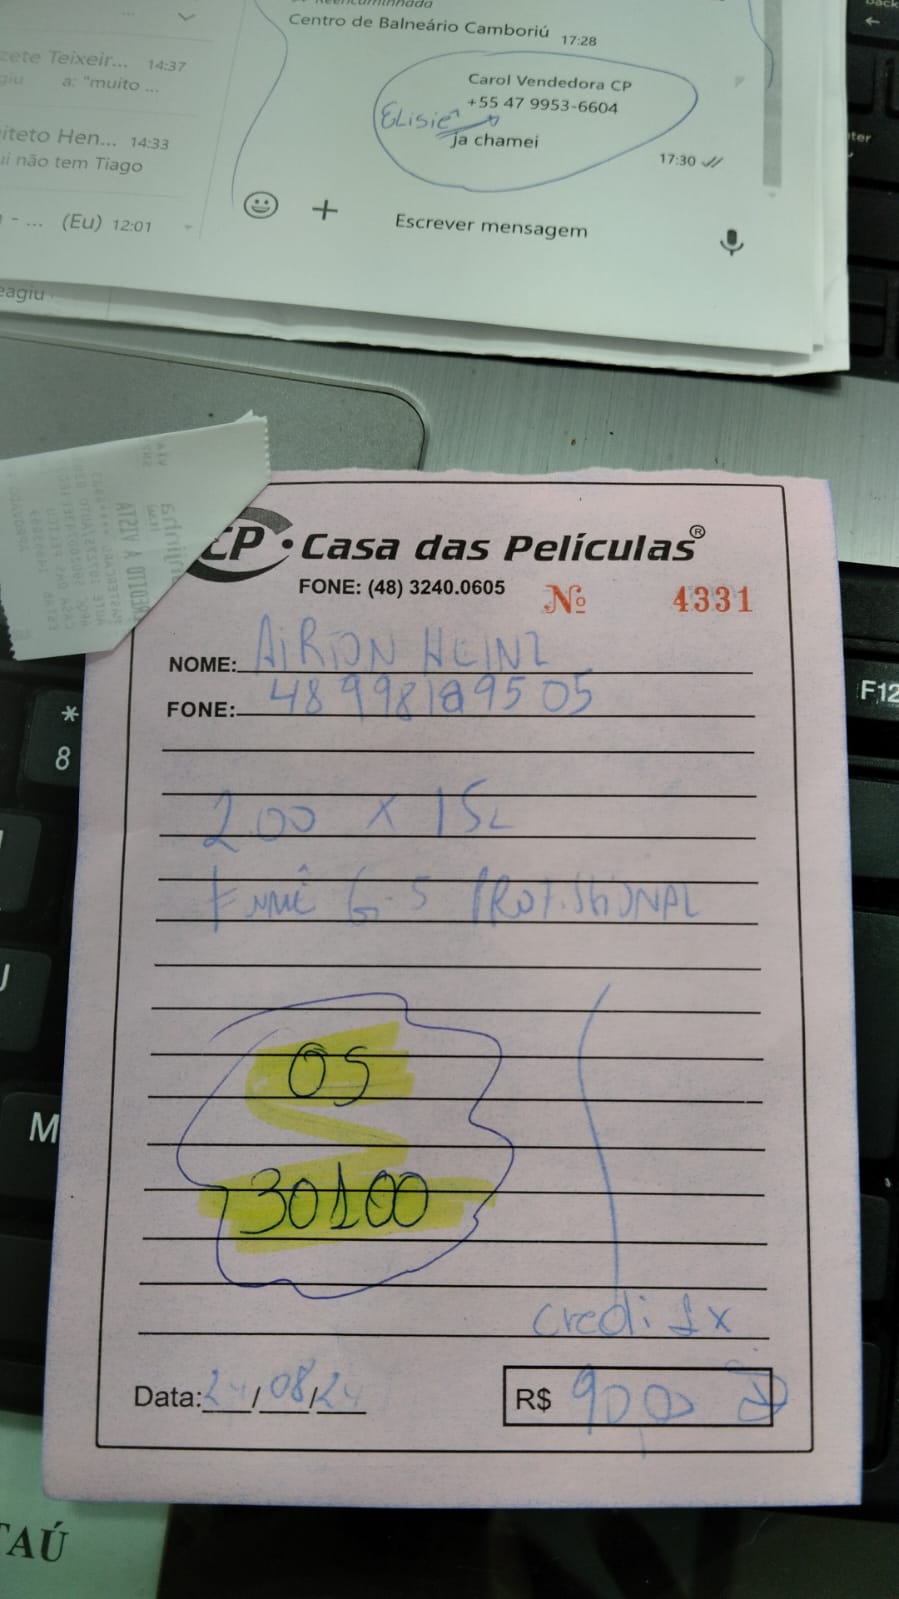 Reencaminhada
Centro de Balneário Camboriú 17:28
Carol Vendedora CP
+55 47 9953-6604
Elisiê
ja chamei
17:30
zete Teixeir... 14:37
giu a: "muito ...
iteto Hen... 14:33
ui não tem Tiago
- ... (Eu) 12:01
Escrever mensagem
eagiu
CP • Casa das Películas®
FONE: (48) 3240.0605 Nº 4331
NOME: AiRTON HEINZ
FONE: 48 998189505
200 x 15L
Fumê G-5 PROFISSIONAL
OS
30100
Credi 1x
Data: 24/08/24 R$ 90,00
F12
*
8
M
TAÚ